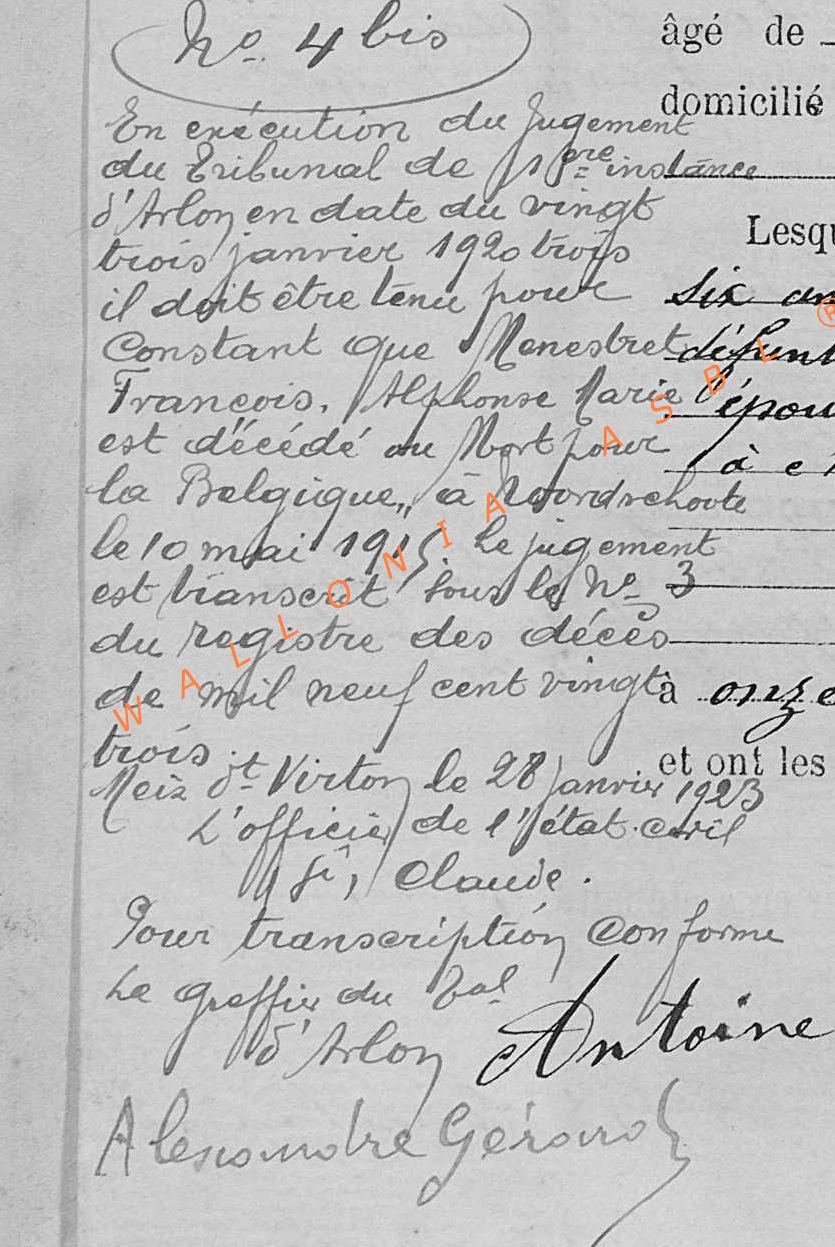 No. 4 bis
âgé de
domicilié
En exécution du Jugement
du Tribunal de 1ère instance
d'Arlon en date du vingt
Lesqu
trois janvier 1920 trois
il doit être tenu pour
six an
constant que Menestret
défunt
François, Alphonse Marie
l'épou
est décédé au Mort pour
à
la Belgique,, à Noordschoote
le 10 mai 1915. Le jugement
est transcrit sous le No 3
du registre des décès
de mil neuf cent vingt
à onze
trois.
et ont les
Meix dt Virton le 28 janvier 1923
L'officier de l'état-civil
Claude.
Pour transcription conforme
Le Greffier du Tal
d'Arlon
Antoine
Alexandre Gérard
WALLONIA ASBL ®